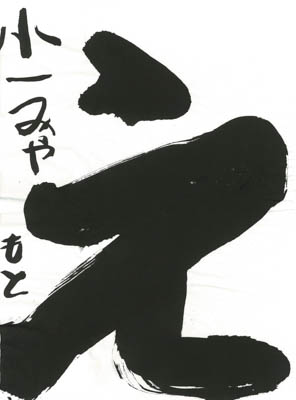 え
小一みやもと